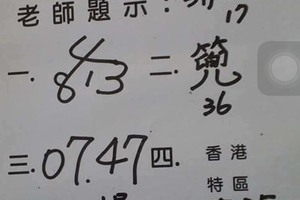 老師題示:
17
一. 4 二.
813
36
三. 07.47 四. 香港
特區